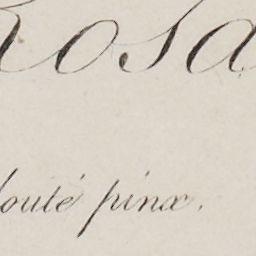 Rosa
douté pinx.